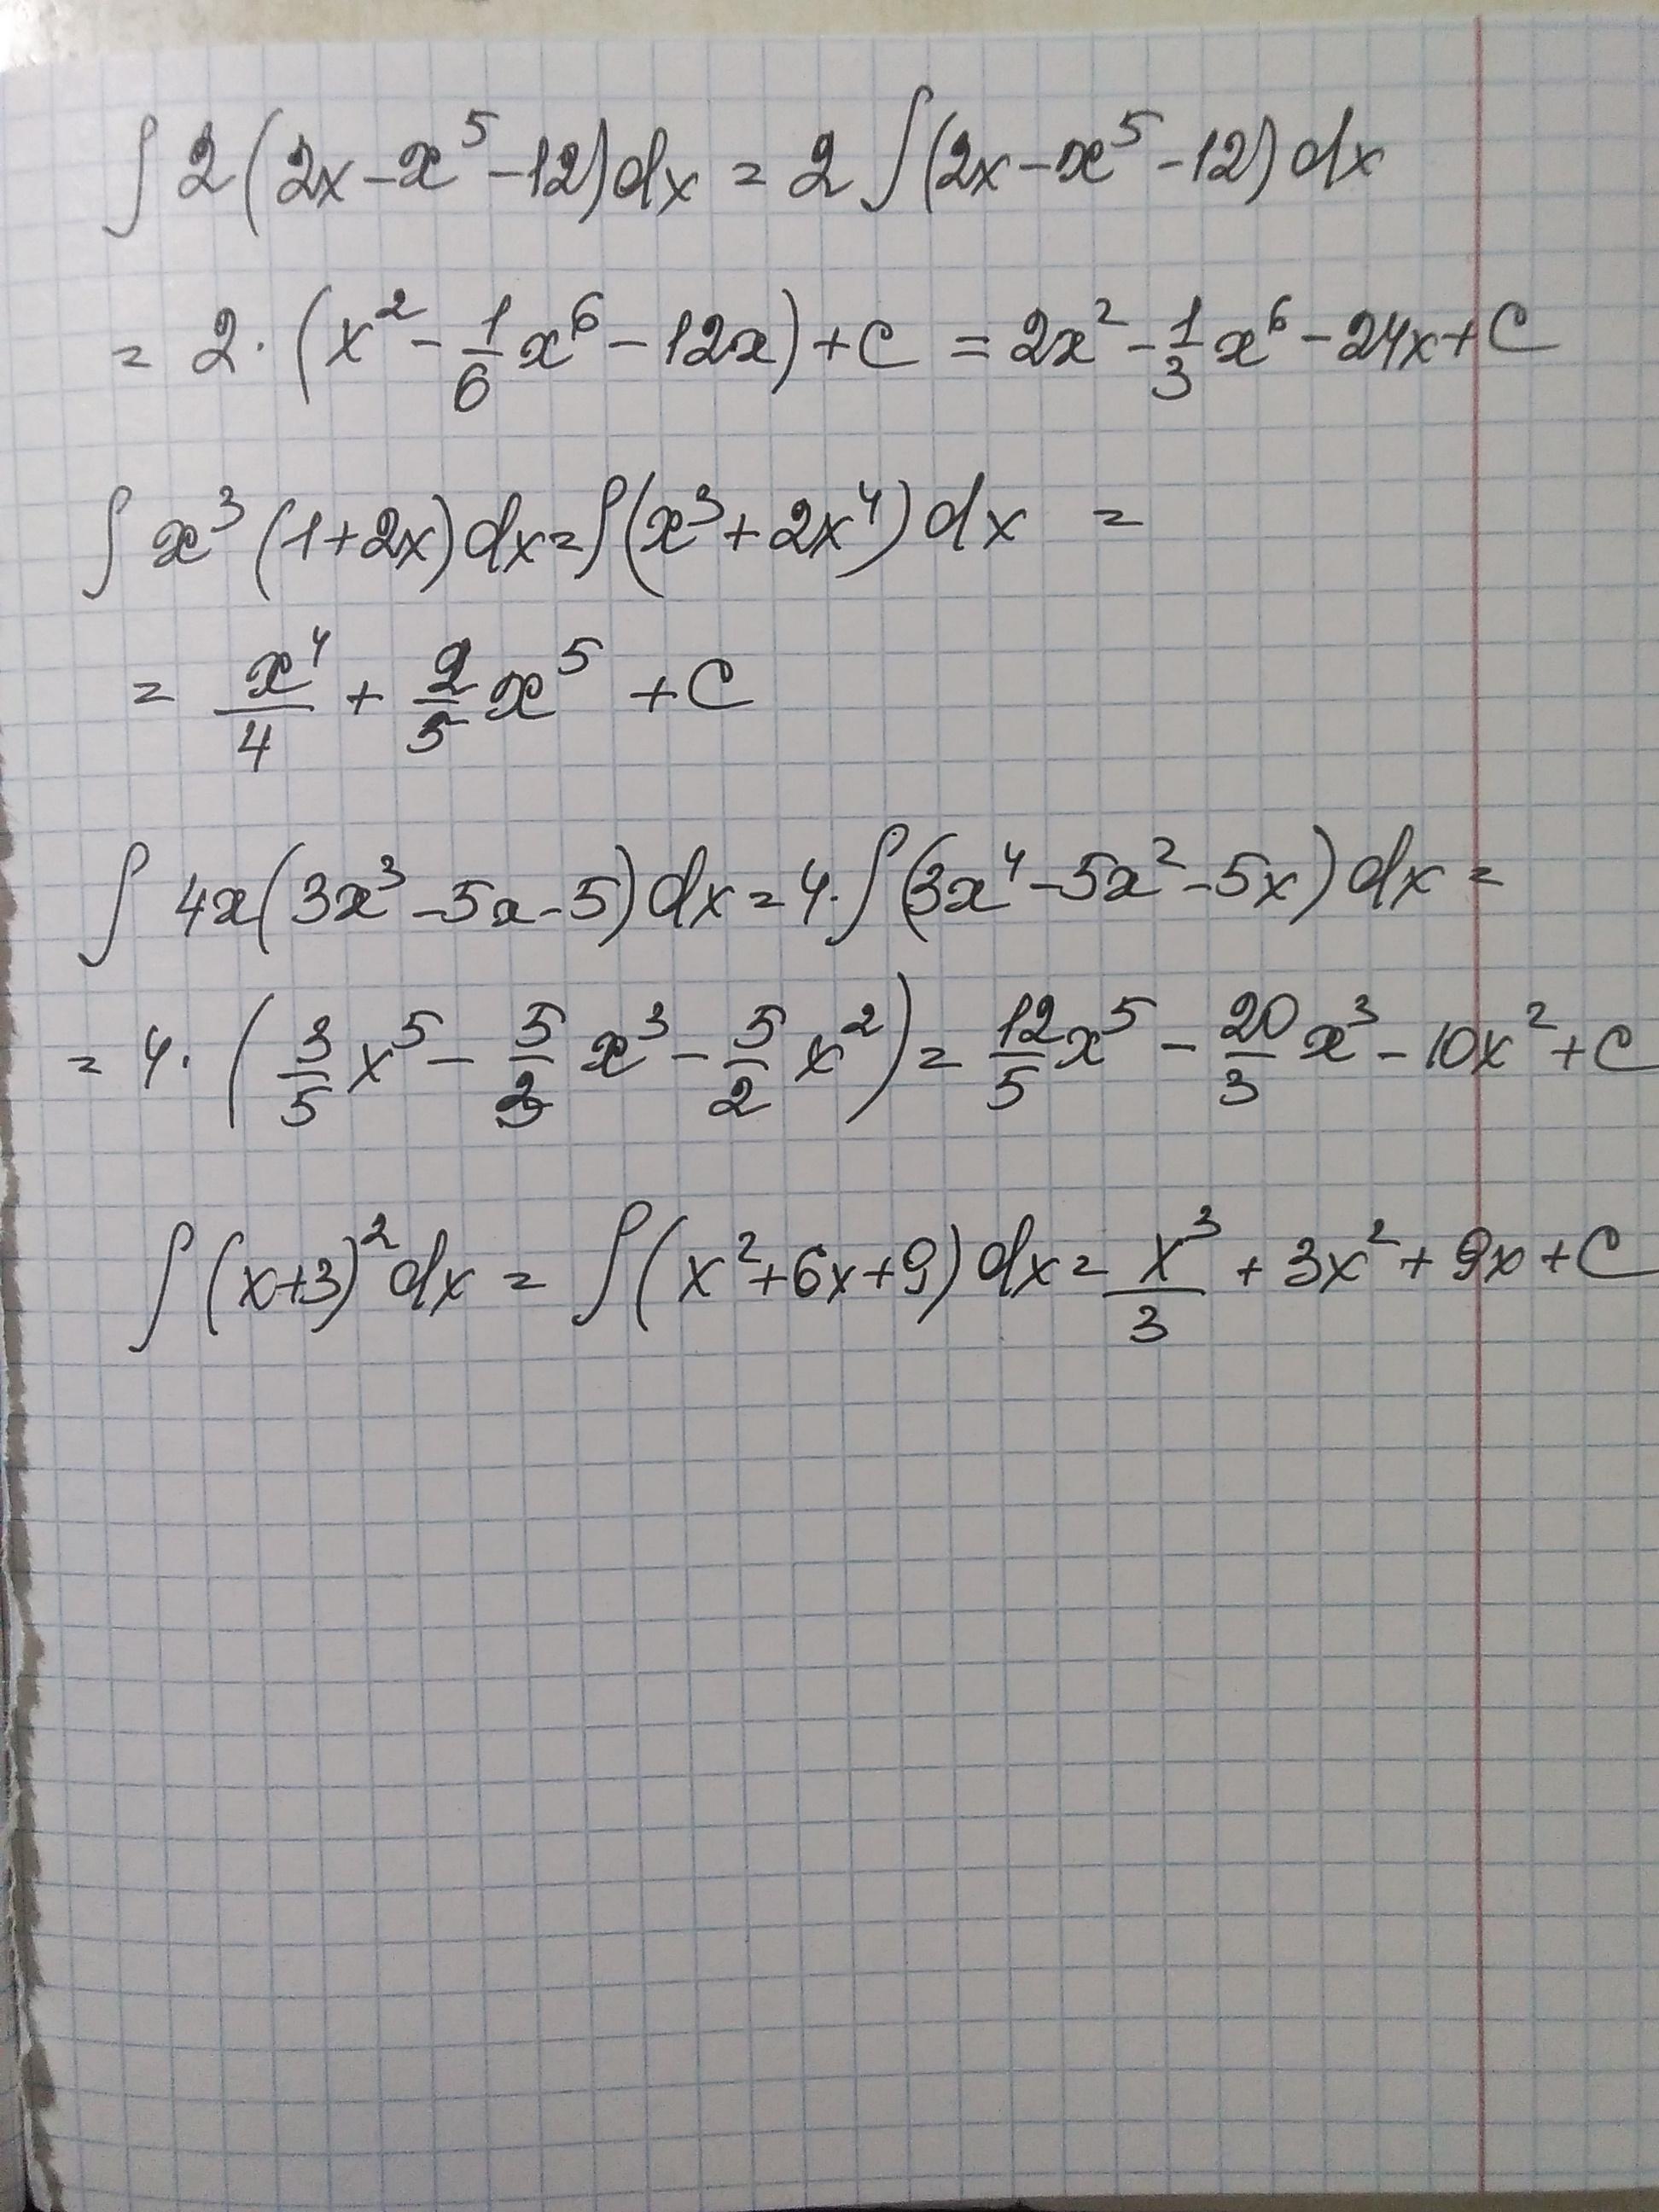 ∫ 2(2x - x⁵ - 12)dx = 2 ∫(2x - x⁵ - 12) dx
= 2 · (x² - 1/6 x⁶ - 12x) + C = 2x² - 1/3 x⁶ - 24x + C
∫ x³ (1+2x) dx = ∫(x³ + 2x⁴) dx =
= x⁴/4 + 2/5 x⁵ + C
∫ 4x(3x³ - 5x - 5) dx = 4 · ∫(3x⁴ - 5x² - 5x) dx =
= 4 · (3/5 x⁵ - 5/3 x³ - 5/2 x²) = 12/5 x⁵ - 20/3 x³ - 10x² + C
∫ (x+3)² dx = ∫ (x² + 6x + 9) dx = x³/3 + 3x² + 9x + C